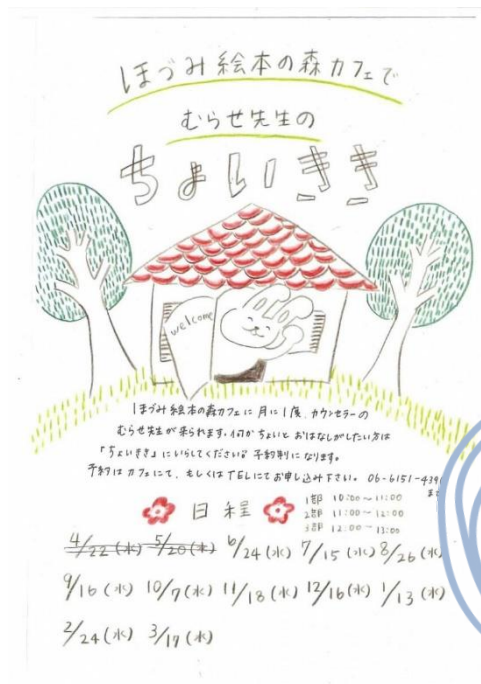 ほづみ絵本の森カフェで
むらせ先生の
ちょいきき
welcome
ほづみ絵本の森カフェに月に1度、カウンセラーの
むらせ先生が来られます。何かちょいとおはなしがしたい方は
「ちょいきき」にいらしてください。予約制になります。
予約はカフェにて、もしくはTELにてお申し込み下さい。06-6151-439
まで
日程
1部 10:00~11:00
2部 11:00~12:00
3部 12:00~13:00
4/22(水) 5/20(水) 6/24(水) 7/15(水) 8/26(水)
9/16(水) 10/7(水) 11/18(水) 12/16(水) 1/13(水)
2/24(水) 3/17(水)